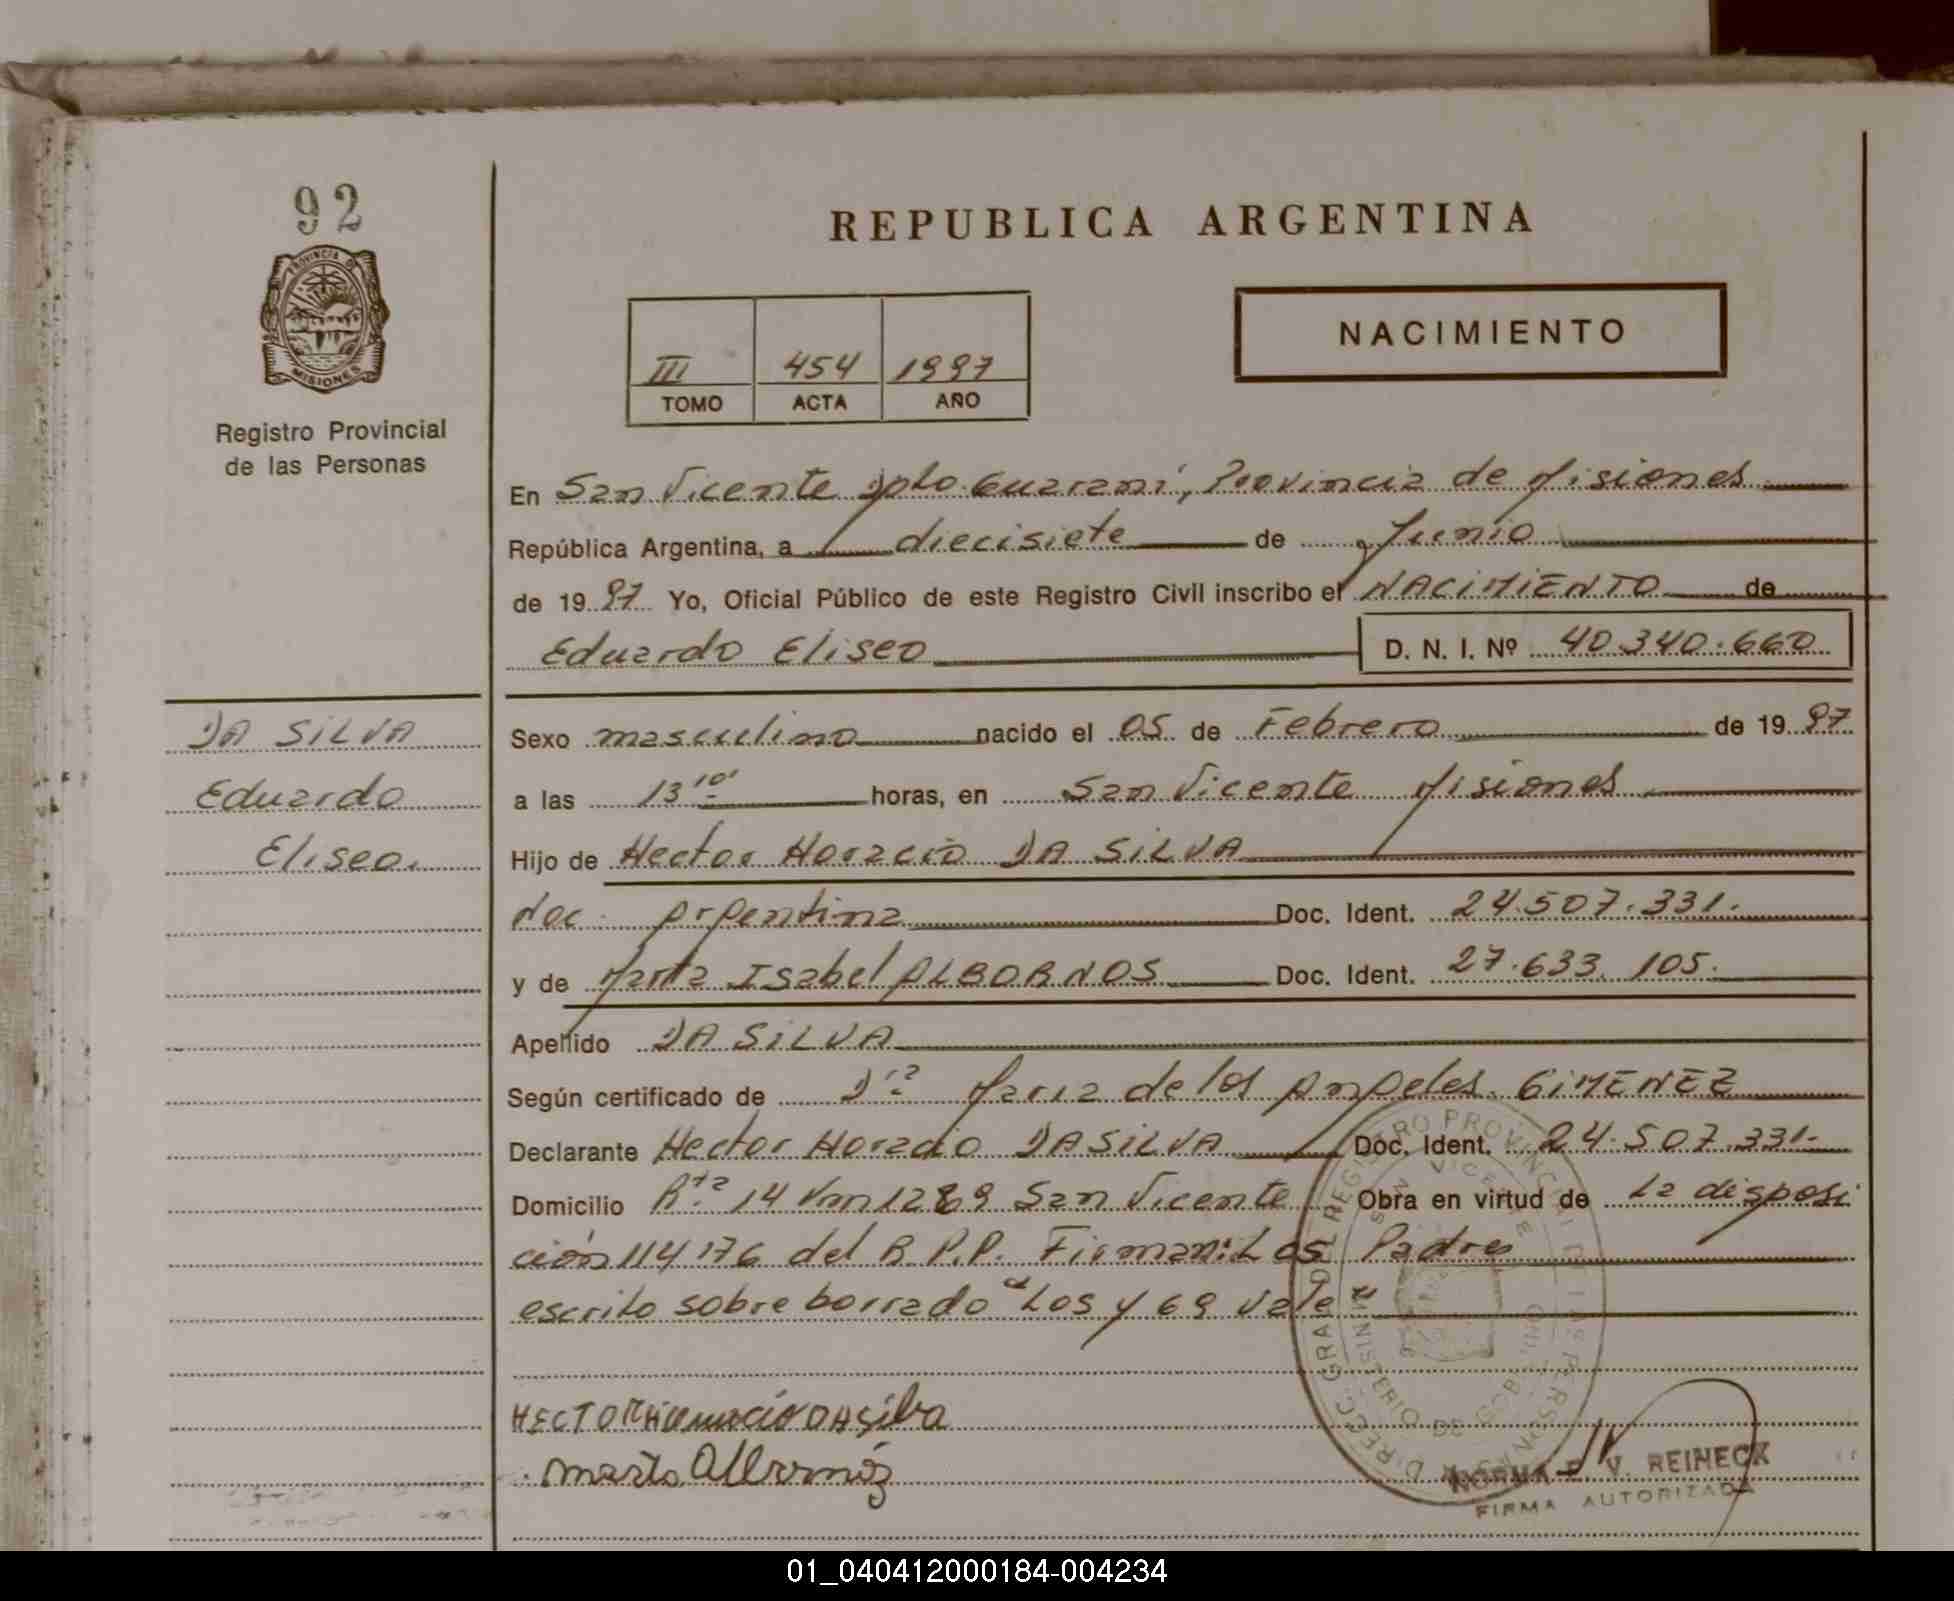 92
PROVINCIA DE
MISIONES
Registro Provincial
de las Personas
REPUBLICA ARGENTINA
NACIMIENTO
III 454 1997
TOMO ACTA AÑO
En San Vicente Dpto. Guaraní, Provincia de Misiones
República Argentina, a diecisiete de Junio
de 19 97 Yo, Oficial Público de este Registro Civil inscribo el NACIMIENTO de
Eduardo Eliseo D. N. I. Nº 40.340.660
DA SILVA
Eduardo
Eliseo.
Sexo masculino nacido el 05 de Febrero de 19 97
a las 13 10' horas, en San Vicente Misiones
Hijo de Hector Horacio DA SILVA
Nac. Argentina Doc. Ident. 24.507.331.
y de Marta Isabel ALBORNOS Doc. Ident. 27.633.105.
Apellido DA SILVA
Según certificado de Dra Maria de los Angeles GIMENEZ
Declarante Hector Horacio DA SILVA Doc. Ident. 24.507.331.
Domicilio Rta 14 Km 1269 San Vicente Obra en virtud de la disposi
ción 114/76 del R.P.P. Firman: Los Padres
escrito sobre borrado "Los y 69 vale
HECTOR Horacio DA Silva
Marta Albornóz
DIRECC. GRAL. DEL REGISTRO PROVINCIAL DE LAS PERSONAS
MINISTERIO DE GOBIERNO
SAN VICENTE
NORMA E. V. REINECK
FIRMA AUTORIZADA
01_040412000184-004234